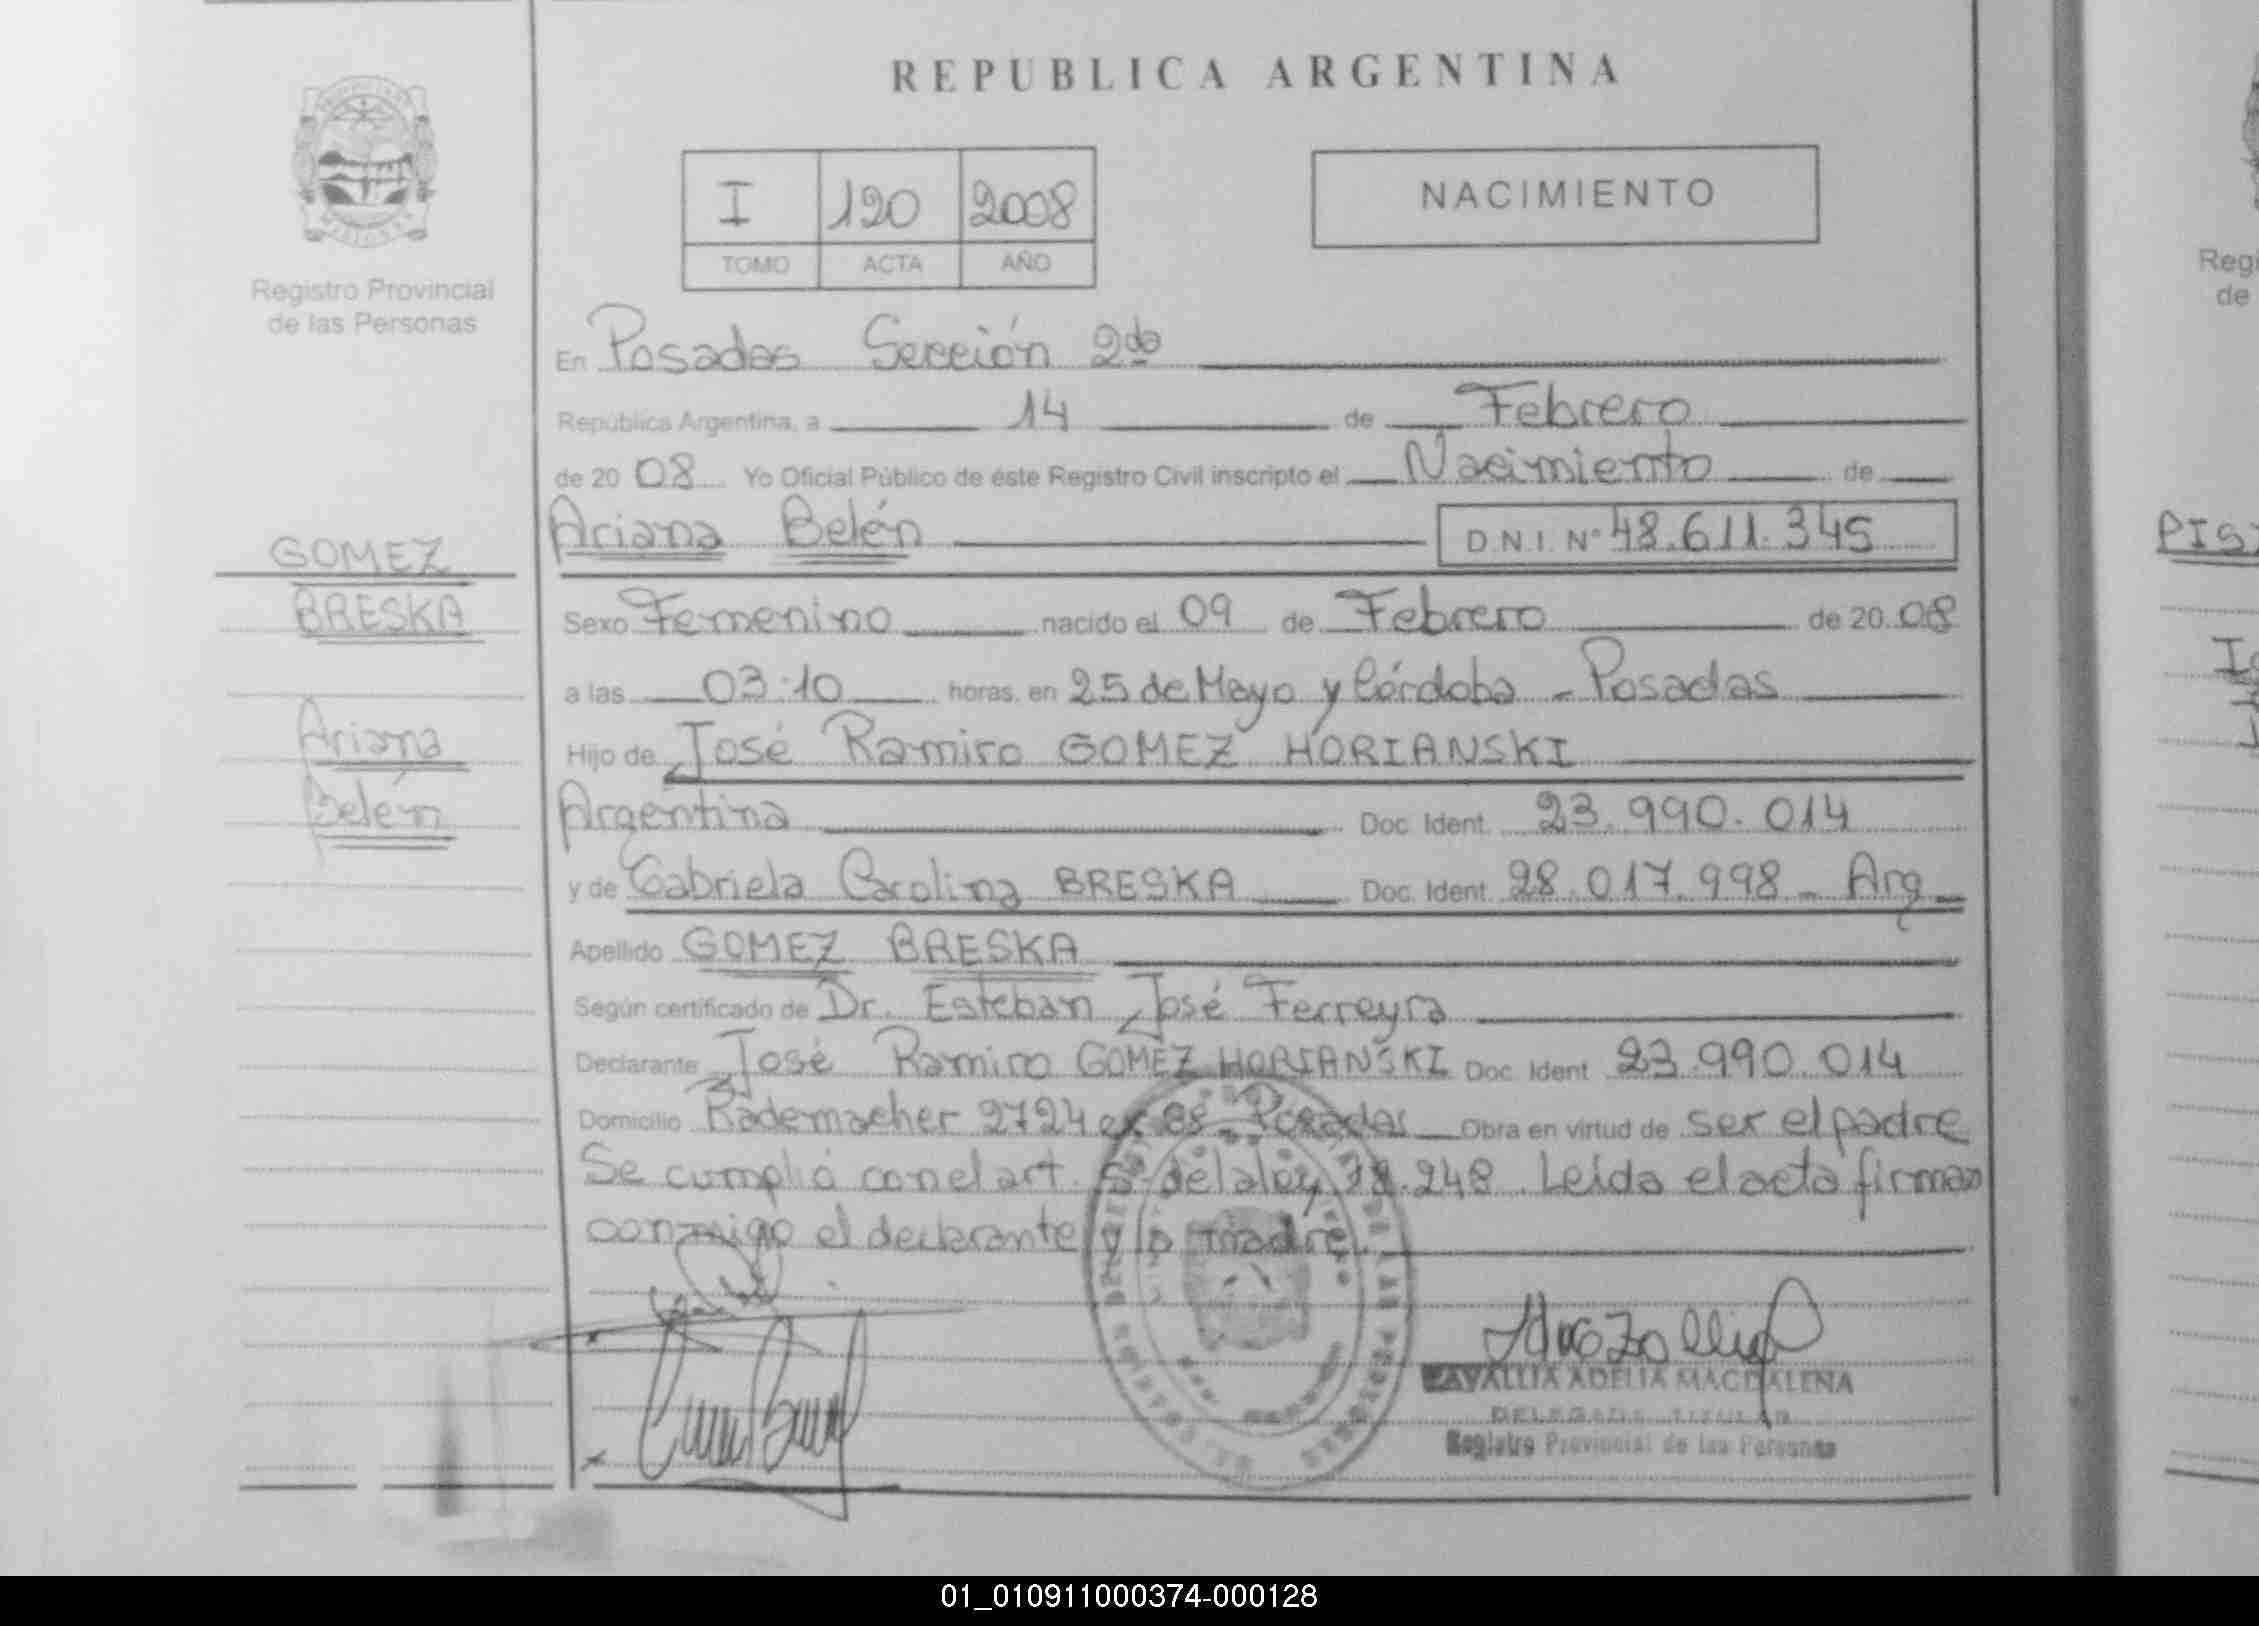 REPUBLICA ARGENTINA
Registro Provincial
de las Personas
I 120 2008
TOMO ACTA AÑO
NACIMIENTO
En Posadas Sección 2da
República Argentina, a 14 de Febrero
de 20 08 Yo Oficial Público de éste Registro Civil inscripto el Nacimiento de
Ariana Belén D.N.I. Nº 48.611.345
GOMEZ
BRESKA
Ariana
Belén
Sexo Femenino nacido el 09 de Febrero de 20 08
a las 03:10 horas, en 25 de Mayo y Córdoba - Posadas
Hijo de José Ramiro GOMEZ HORIANSKI
Argentina Doc. Ident. 23.990.014
y de Gabriela Carolina BRESKA Doc. Ident. 28.017.998 - Arg
Apellido GOMEZ BRESKA
Según certificado de Dr. Esteban José Ferreyra
Declarante José Ramiro GOMEZ HORIANSKI Doc. Ident 23.990.014
Domicilio Rademacher 2724 Posadas Obra en virtud de ser el padre
Se cumplió con el art. 5 de la ley 18.248. Leída el acta firman
conmigo el declarante y la madre.
ADELIA MAGDALENA
DELEGADA TITULAR
Registro Provincial de las Personas
Regi
de
PIS
01_010911000374-000128